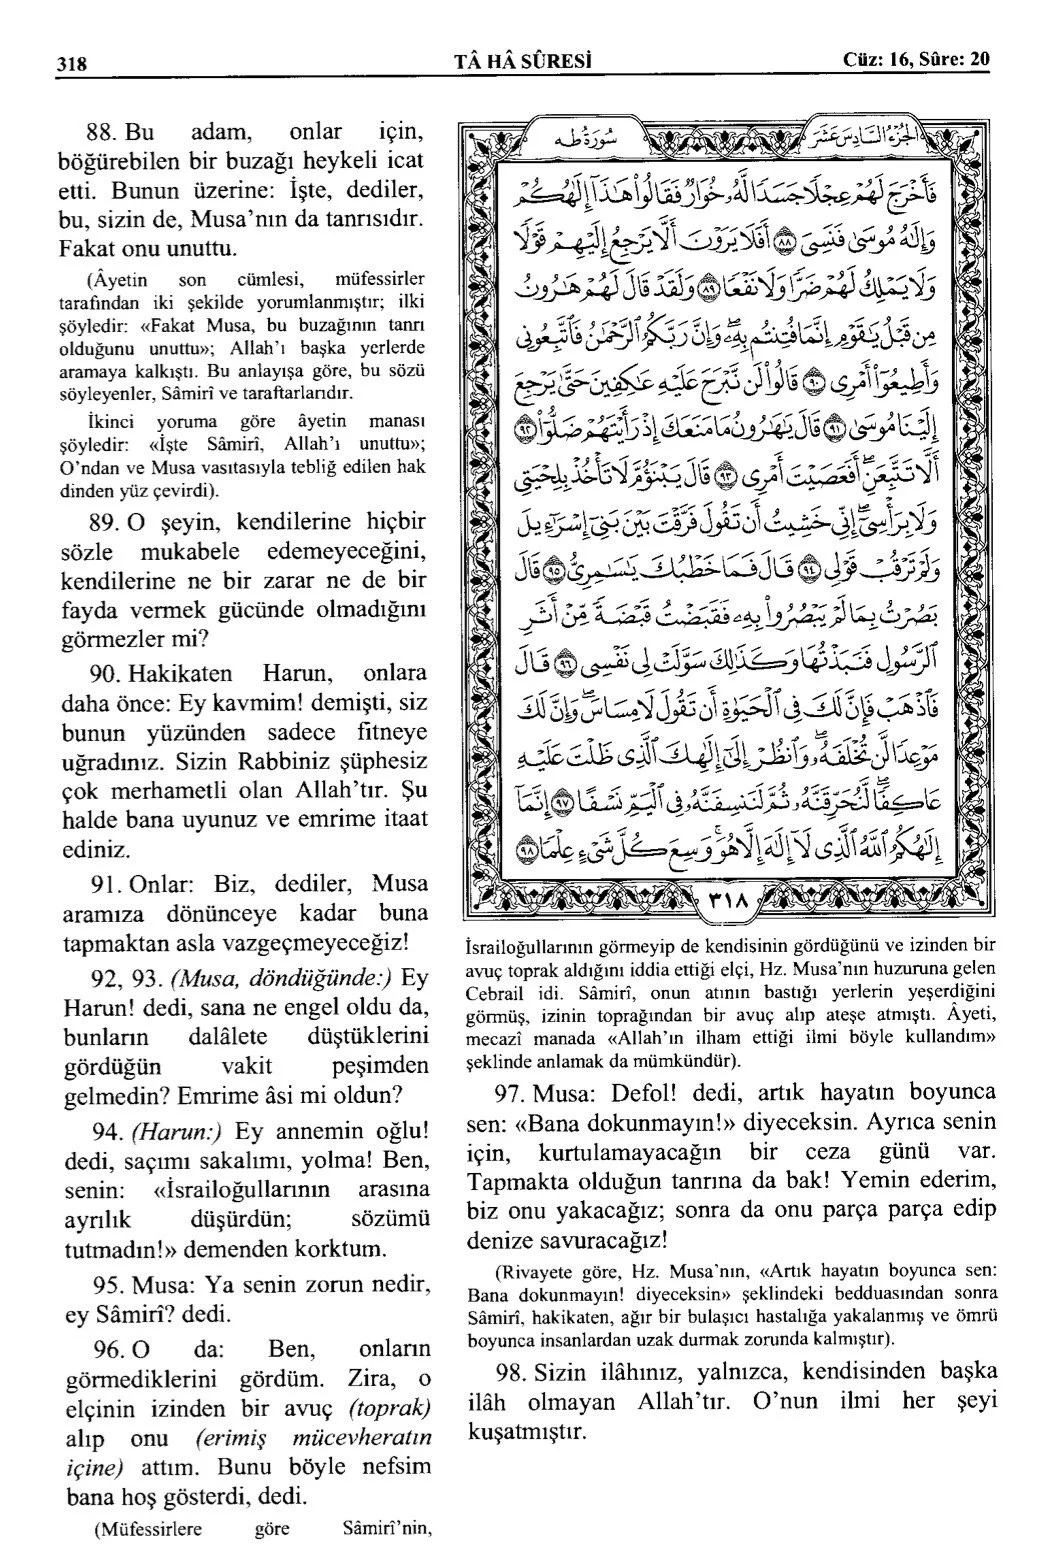 318
TÂ HÂ SÛRESİ
Cüz: 16, Sûre: 20
88. Bu adam, onlar için,
böğürebilen bir buzağı heykeli icat
etti. Bunun üzerine: İşte, dediler,
bu, sizin de, Musa'nın da tanrısıdır.
Fakat onu unuttu.
(Âyetin son cümlesi, müfessirler
tarafından iki şekilde yorumlanmıştır; ilki
şöyledir: «Fakat Musa, bu buzağının tanrı
olduğunu unuttu»; Allah'ı başka yerlerde
aramaya kalkıştı. Bu anlayışa göre, bu sözü
söyleyenler, Sâmirî ve taraftarlarıdır.
İkinci yoruma göre âyetin manası
şöyledir: «İşte Sâmirî, Allah'ı unuttu»;
O'ndan ve Musa vasıtasıyla tebliğ edilen hak
dinden yüz çevirdi).
89. O şeyin, kendilerine hiçbir
sözle mukabele edemeyeceğini,
kendilerine ne bir zarar ne de bir
fayda vermek gücünde olmadığını
görmezler mi?
90. Hakikaten Harun, onlara
daha önce: Ey kavmim! demişti, siz
bunun yüzünden sadece fitneye
uğradınız. Sizin Rabbiniz şüphesiz
çok merhametli olan Allah'tır. Şu
halde bana uyunuz ve emrime itaat
ediniz.
91. Onlar: Biz, dediler, Musa
aramıza dönünceye kadar buna
tapmaktan asla vazgeçmeyeceğiz!
92, 93. (Musa, döndüğünde:) Ey
Harun! dedi, sana ne engel oldu da,
bunların dalâlete düştüklerini
gördüğün vakit peşimden
gelmedin? Emrime âsi mi oldun?
94. (Harun:) Ey annemin oğlu!
dedi, saçımı sakalımı, yolma! Ben,
senin: «İsrailoğullarının arasına
ayrılık düşürdün; sözümü
tutmadın!» demenden korktum.
95. Musa: Ya senin zorun nedir,
ey Sâmirî? dedi.
96. O da: Ben, onların
görmediklerini gördüm. Zira, o
elçinin izinden bir avuç (toprak)
alıp onu (erimiş mücevheratın
içine) attım. Bunu böyle nefsim
bana hoş gösterdi, dedi.
(Müfessirlere göre Sâmirî'nin,
الجزء السادس عشر
سورة طه
فَأَخْرَجَ لَهُمْ عِجْلًا جَسَدًا لَّهُ خُوَارٌ فَقَالُوا هَٰذَا إِلَٰهُكُمْ
وَإِلَٰهُ مُوسَىٰ فَنَسِيَ ﴿٨٨﴾ أَفَلَا يَرَوْنَ أَلَّا يَرْجِعُ إِلَيْهِمْ قَوْلًا
وَلَا يَمْلِكُ لَهُمْ ضَرًّا وَلَا نَفْعًا ﴿٨٩﴾ وَلَقَدْ قَالَ لَهُمْ هَٰرُونُ
مِن قَبْلُ يَٰقَوْمِ إِنَّمَا فُتِنتُم بِهِ وَإِنَّ رَبَّكُمُ الرَّحْمَٰنُ فَاتَّبِعُونِي
وَأَطِيعُوا أَمْرِي ﴿٩٠﴾ قَالُوا لَن نَّبْرَحَ عَلَيْهِ عَٰكِفِينَ حَتَّىٰ يَرْجِعَ
إِلَيْنَا مُوسَىٰ ﴿٩١﴾ قَالَ يَٰهَٰرُونُ مَا مَنَعَكَ إِذْ رَأَيْتَهُمْ ضَلُّوا ﴿٩٢﴾
أَلَّا تَتَّبِعَنِ أَفَعَصَيْتَ أَمْرِي ﴿٩٣﴾ قَالَ يَبْنَؤُمَّ لَا تَأْخُذْ بِلِحْيَتِي
وَلَا بِرَأْسِي إِنِّي خَشِيتُ أَن تَقُولَ فَرَّقْتَ بَيْنَ بَنِي إِسْرَٰءِيلَ
وَلَمْ تَرْقُبْ قَوْلِي ﴿٩٤﴾ قَالَ فَمَا خَطْبُكَ يَٰسَٰمِرِيُّ ﴿٩٥﴾ قَالَ
بَصُرْتُ بِمَا لَمْ يَبْصُرُوا بِهِ فَقَبَضْتُ قَبْضَةً مِّنْ أَثَرِ
الرَّسُولِ فَنَبَذْتُهَا وَكَذَٰلِكَ سَوَّلَتْ لِي نَفْسِي ﴿٩٦﴾ قَالَ
فَاذْهَبْ فَإِنَّ لَكَ فِي الْحَيَوٰةِ أَن تَقُولَ لَا مِسَاسَ وَإِنَّ لَكَ
مَوْعِدًا لَّن تُخْلَفَهُ وَانظُرْ إِلَىٰ إِلَٰهِكَ الَّذِي ظَلْتَ عَلَيْهِ
عَاكِفًا لَّنُحَرِّقَنَّهُ ثُمَّ لَنَنسِفَنَّهُ فِي الْيَمِّ نَسْفًا ﴿٩٧﴾ إِنَّمَا
إِلَٰهُكُمُ اللَّهُ الَّذِي لَا إِلَٰهَ إِلَّا هُوَ وَسِعَ كُلَّ شَيْءٍ عِلْمًا ﴿٩٨﴾
٣١٨
İsrailoğullarının görmeyip de kendisinin gördüğünü ve izinden bir
avuç toprak aldığını iddia ettiği elçi, Hz. Musa'nın huzuruna gelen
Cebrail idi. Sâmirî, onun atının bastığı yerlerin yeşerdiğini
görmüş, izinin toprağından bir avuç alıp ateşe atmıştı. Âyeti,
mecazî manada «Allah'ın ilham ettiği ilmi böyle kullandım»
şeklinde anlamak da mümkündür).
97. Musa: Defol! dedi, artık hayatın boyunca
sen: «Bana dokunmayın!» diyeceksin. Ayrıca senin
için, kurtulamayacağın bir ceza günü var.
Tapmakta olduğun tanrına da bak! Yemin ederim,
biz onu yakacağız; sonra da onu parça parça edip
denize savuracağız!
(Rivayete göre, Hz. Musa'nın, «Artık hayatın boyunca sen:
Bana dokunmayın! diyeceksin» şeklindeki bedduasından sonra
Sâmirî, hakikaten, ağır bir bulaşıcı hastalığa yakalanmış ve ömrü
boyunca insanlardan uzak durmak zorunda kalmıştır).
98. Sizin ilâhınız, yalnızca, kendisinden başka
ilâh olmayan Allah'tır. O'nun ilmi her şeyi
kuşatmıştır.